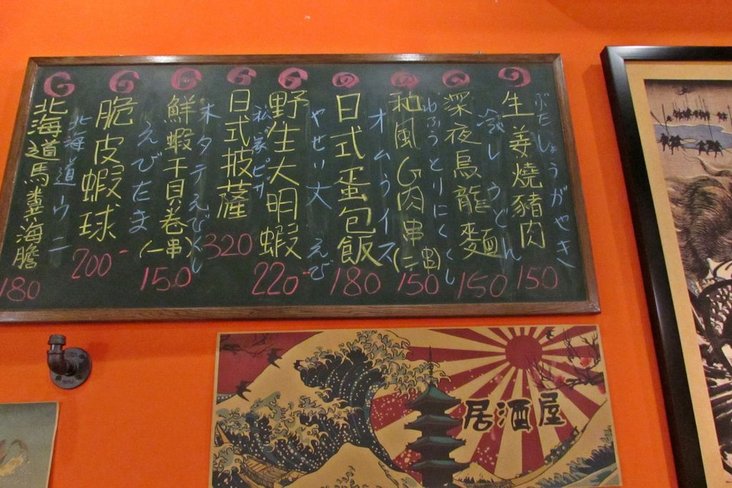 生姜燒豬肉
ぶたしょうがやき
150
深夜烏龍麵
冷レうどん
150
和風G肉串(二串)
わふうとりにくくし
150
日式蛋包飯
オムライス
180
野生大明蝦
やせい大えび
220
日式披薩
320
鮮蝦干貝卷(一串)
ホタテえびくし
150
脆皮蝦球
えびたま
200
北海道馬糞海膽
北海道ウニ
180
居酒屋